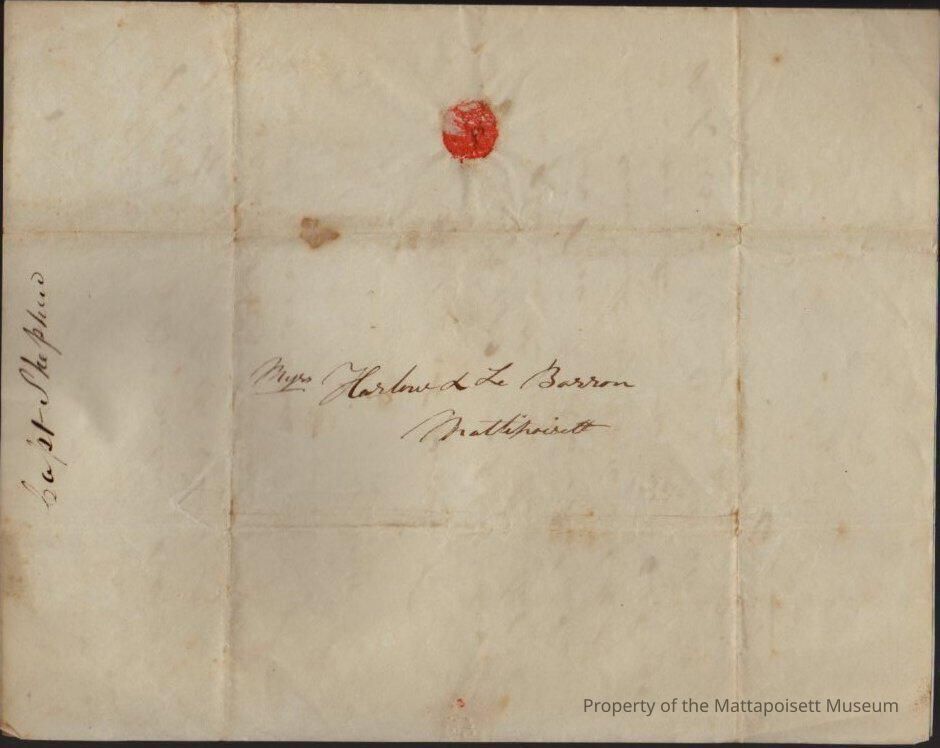 Capt Shepherd
Mssrs Harlow & Le Barron
Mattipoisett
Property of the Mattapoisett Museum